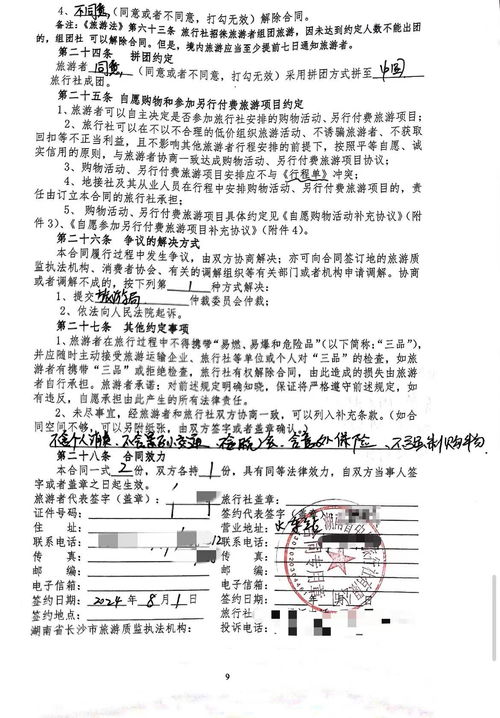 4、不同意（同意或者不同意，打勾无效）解除合同。
备注：《旅游法》第六十三条 旅行社招徕旅游者组团旅游，因未达到约定人数不能出团
的，组团社 可以解除合同。但是，境内旅游应当至少提前七日通知旅游者。
第二十四条 拼团约定
旅游者 同意（同意或者不同意，打勾无效）采用拼团方式拼至 中国
旅行社成团。
第二十五条 自愿购物和参加另行付费旅游项目约定
1、旅游者可以自主决定是否参加旅行社安排的购物活动、另行付费旅游项目；
2、旅行社可以在不以不合理的低价组织旅游活动、不诱骗旅游者、不获取
回扣等不正当利益，且不影响其他旅游者行程安排的前提下，按照平等自愿、诚
实信用的原则，与旅游者协商一致达成购物活动、另行付费旅游项目协议；
3、购物活动、另行付费旅游项目安排应不与《行程单》冲突；
4、地接社及其从业人员在行程中安排购物活动、另行付费旅游项目的，责
任由订立本合同的旅行社承担；
5、购物活动、另行付费旅游项目具体约定见《自愿购物活动补充协议》（附
件 3）、《自愿参加另行付费旅游项目补充协议》（附件 4）。
第二十六条 争议的解决方式
本合同履行过程中发生争议，由双方协商解决；亦可向合同签订地的旅游质
监执法机构、消费者协会、有关的调解组织等有关部门或者机构申请调解。协商
或者调解不成的，按下列第 1 种方式解决：
1、提交 旅游局 仲裁委员会仲裁；
2、依法向人民法院起诉。
第二十七条 其他约定事项
1、旅游者在旅行过程中不得携带“易燃、易爆和危险品”（以下简称：“三品”），
并应随时主动接受旅游运输企业、旅行社等单位或个人对“三品”的检查，如旅
游者有携带“三品”或拒绝检查，旅行社有权解除合同，由此造成的损失由旅游
者自行承担。旅游者承诺：对前述规定明知知晓，保证将严格遵守前述规定，如
有违反，自愿承担由此产生的所有法律责任。
2、未尽事宜，经旅游者和旅行社双方协商一致，可以列入补充条款。（如合
同空间不够，可以另附纸张，由双方签字或者盖章确认。）
不含个人消费 保险、不强制购物
第二十八条 合同效力
本合同一式 2 份，双方各持 1 份，具有同等法律效力，自双方当事人签
字或者盖章之日起生效。
旅游者代表签字（盖章）：
旅行社盖章：
证件号码：
签约代表签字（盖章）：
住 址：
营业地址：火车站
联系电话：
联系电话：
传 真：
传 真：
邮 编：
邮 编：
电子信箱：
电子信箱：
签约日期：2024 年 8 月 1 日
签约日期： 年 月 日
签约地点：
旅行社
湖南省长沙市旅游质监执法机构：
投诉电话：
合同专用章
9